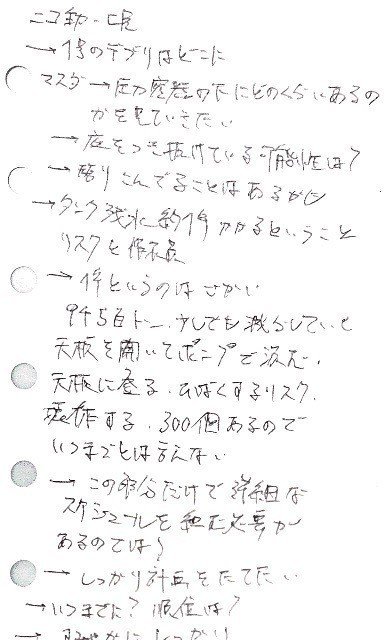 ニコ動 七尾
→1号のデブリはどこに
マスダ→圧力容器の下にどのくらいあるの
かを見ていきたい
→底をつき抜けている可能性は?
→踏りこんでることはあるが
→タンク残水 約1年かかるということ
リスクと作業員
→1年というのはでかい
9千5百トン、少しでも減らしていく
天板を開いてポンプで
天板に登る、ひばくするリスク、
操作する、300個あるので
いつまでとは言えない
→この部分だけで詳細な
スケジュールを組む必要が
あるのでは?
→しっかり計画をたてたい
→いつまでに? 順位は?
→ しっかり